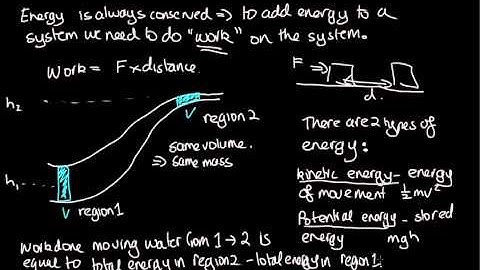 Energy is always conserved => to add energy to a
system we need to do "work" on the system.
Work = F x distance.
F
d.
h2
h1
V region 2
same volume.
=> same mass
V region 1
There are 2 types of
energy:
kinetic energy - energy
of movement ½mv²
Potential energy - stored
energy mgh
Work done moving water from 1 → 2 is
equal to total energy in region 2 - total energy in region 1.